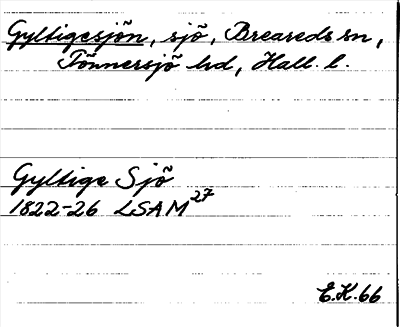 Gyltigesjön, sjö, Breareds sn,
Tönnersjö hd, Hall. l.
Gyltige Sjö
1822-26 LSAM 27
E.K. 66